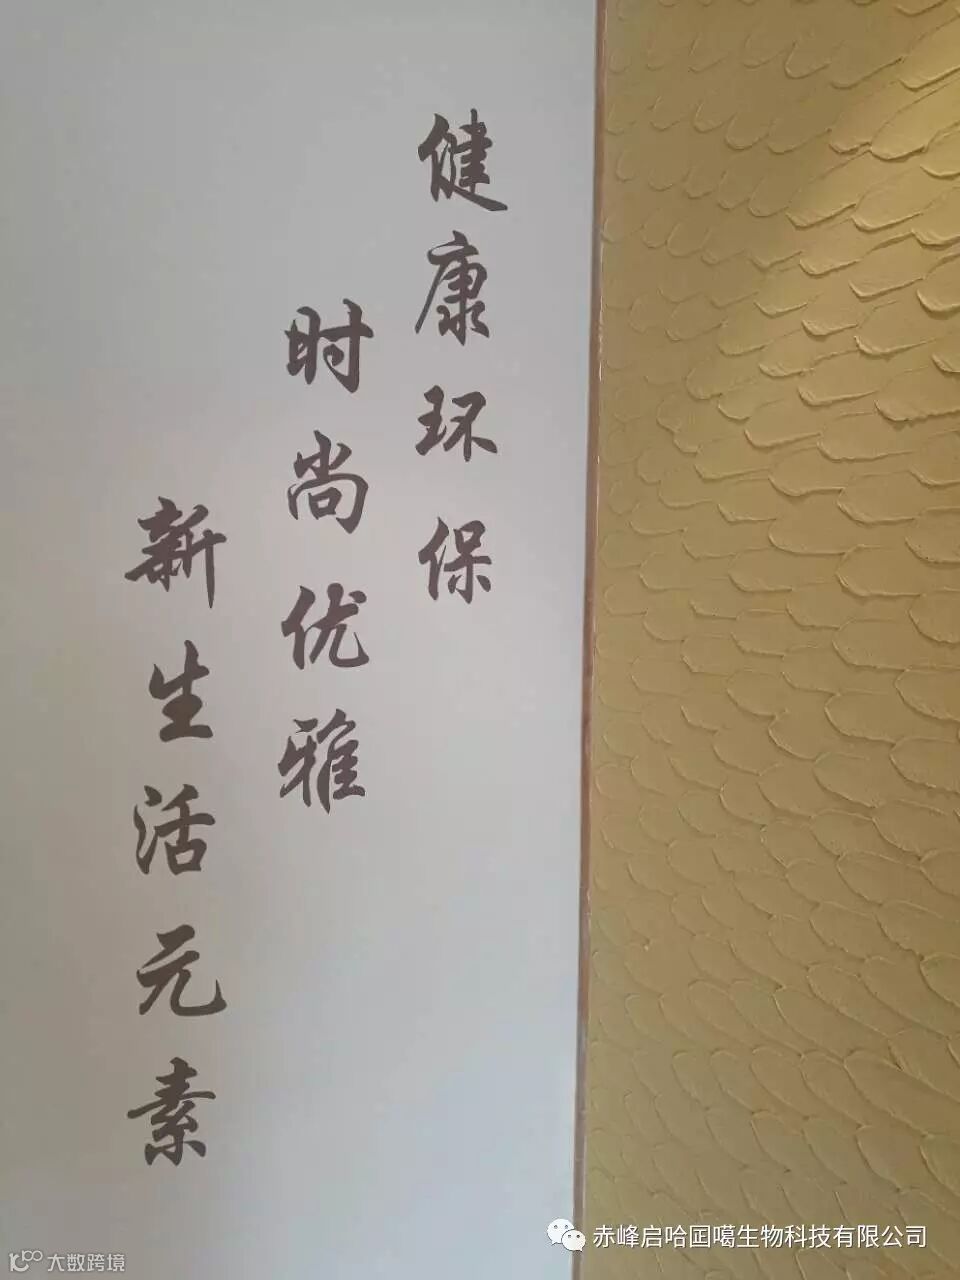 健康环保
时尚优雅
新生活元素
赤峰启哈国噶生物科技有限公司
大数跨境